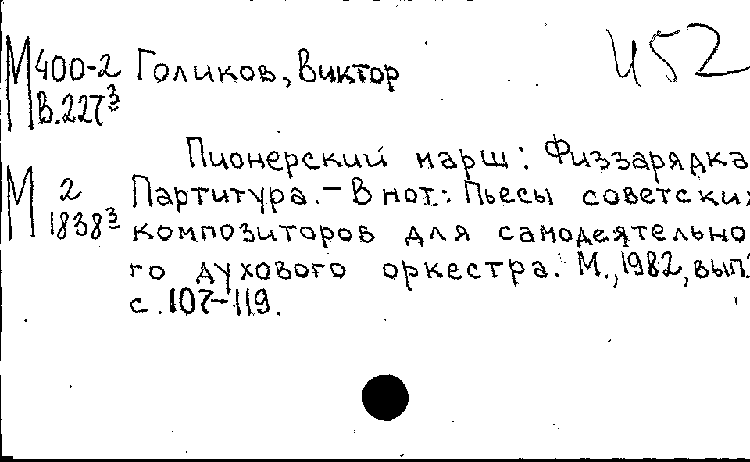 М 400-2 Голиков, Виктор 452
В.227³
Пионерский марш: Физзарядка
М 2 Партитура. – В нот.: Пьесы советских
1838³ композиторов для самодеятельно
го духового оркестра. М., 1982, вып.
с. 107-119.